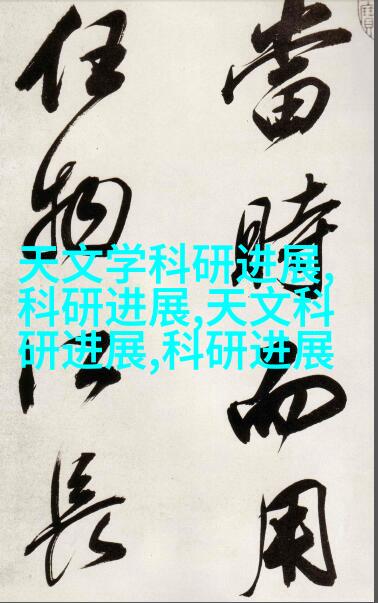 當時而用
任物以長
天文学科研进展,
科研进展,天文科
研进展,科研进展